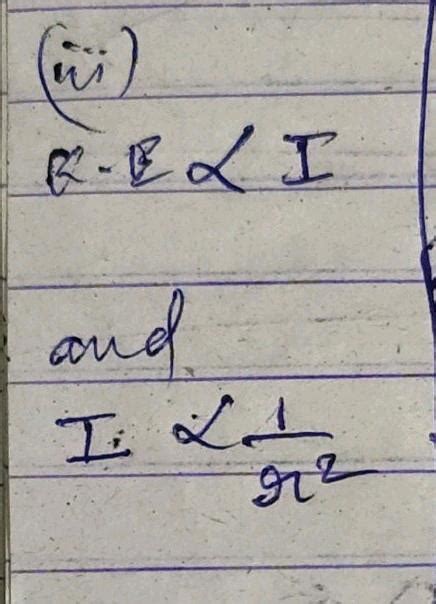 (iii)
K.E ∝ I
and
I ∝ 1/r²